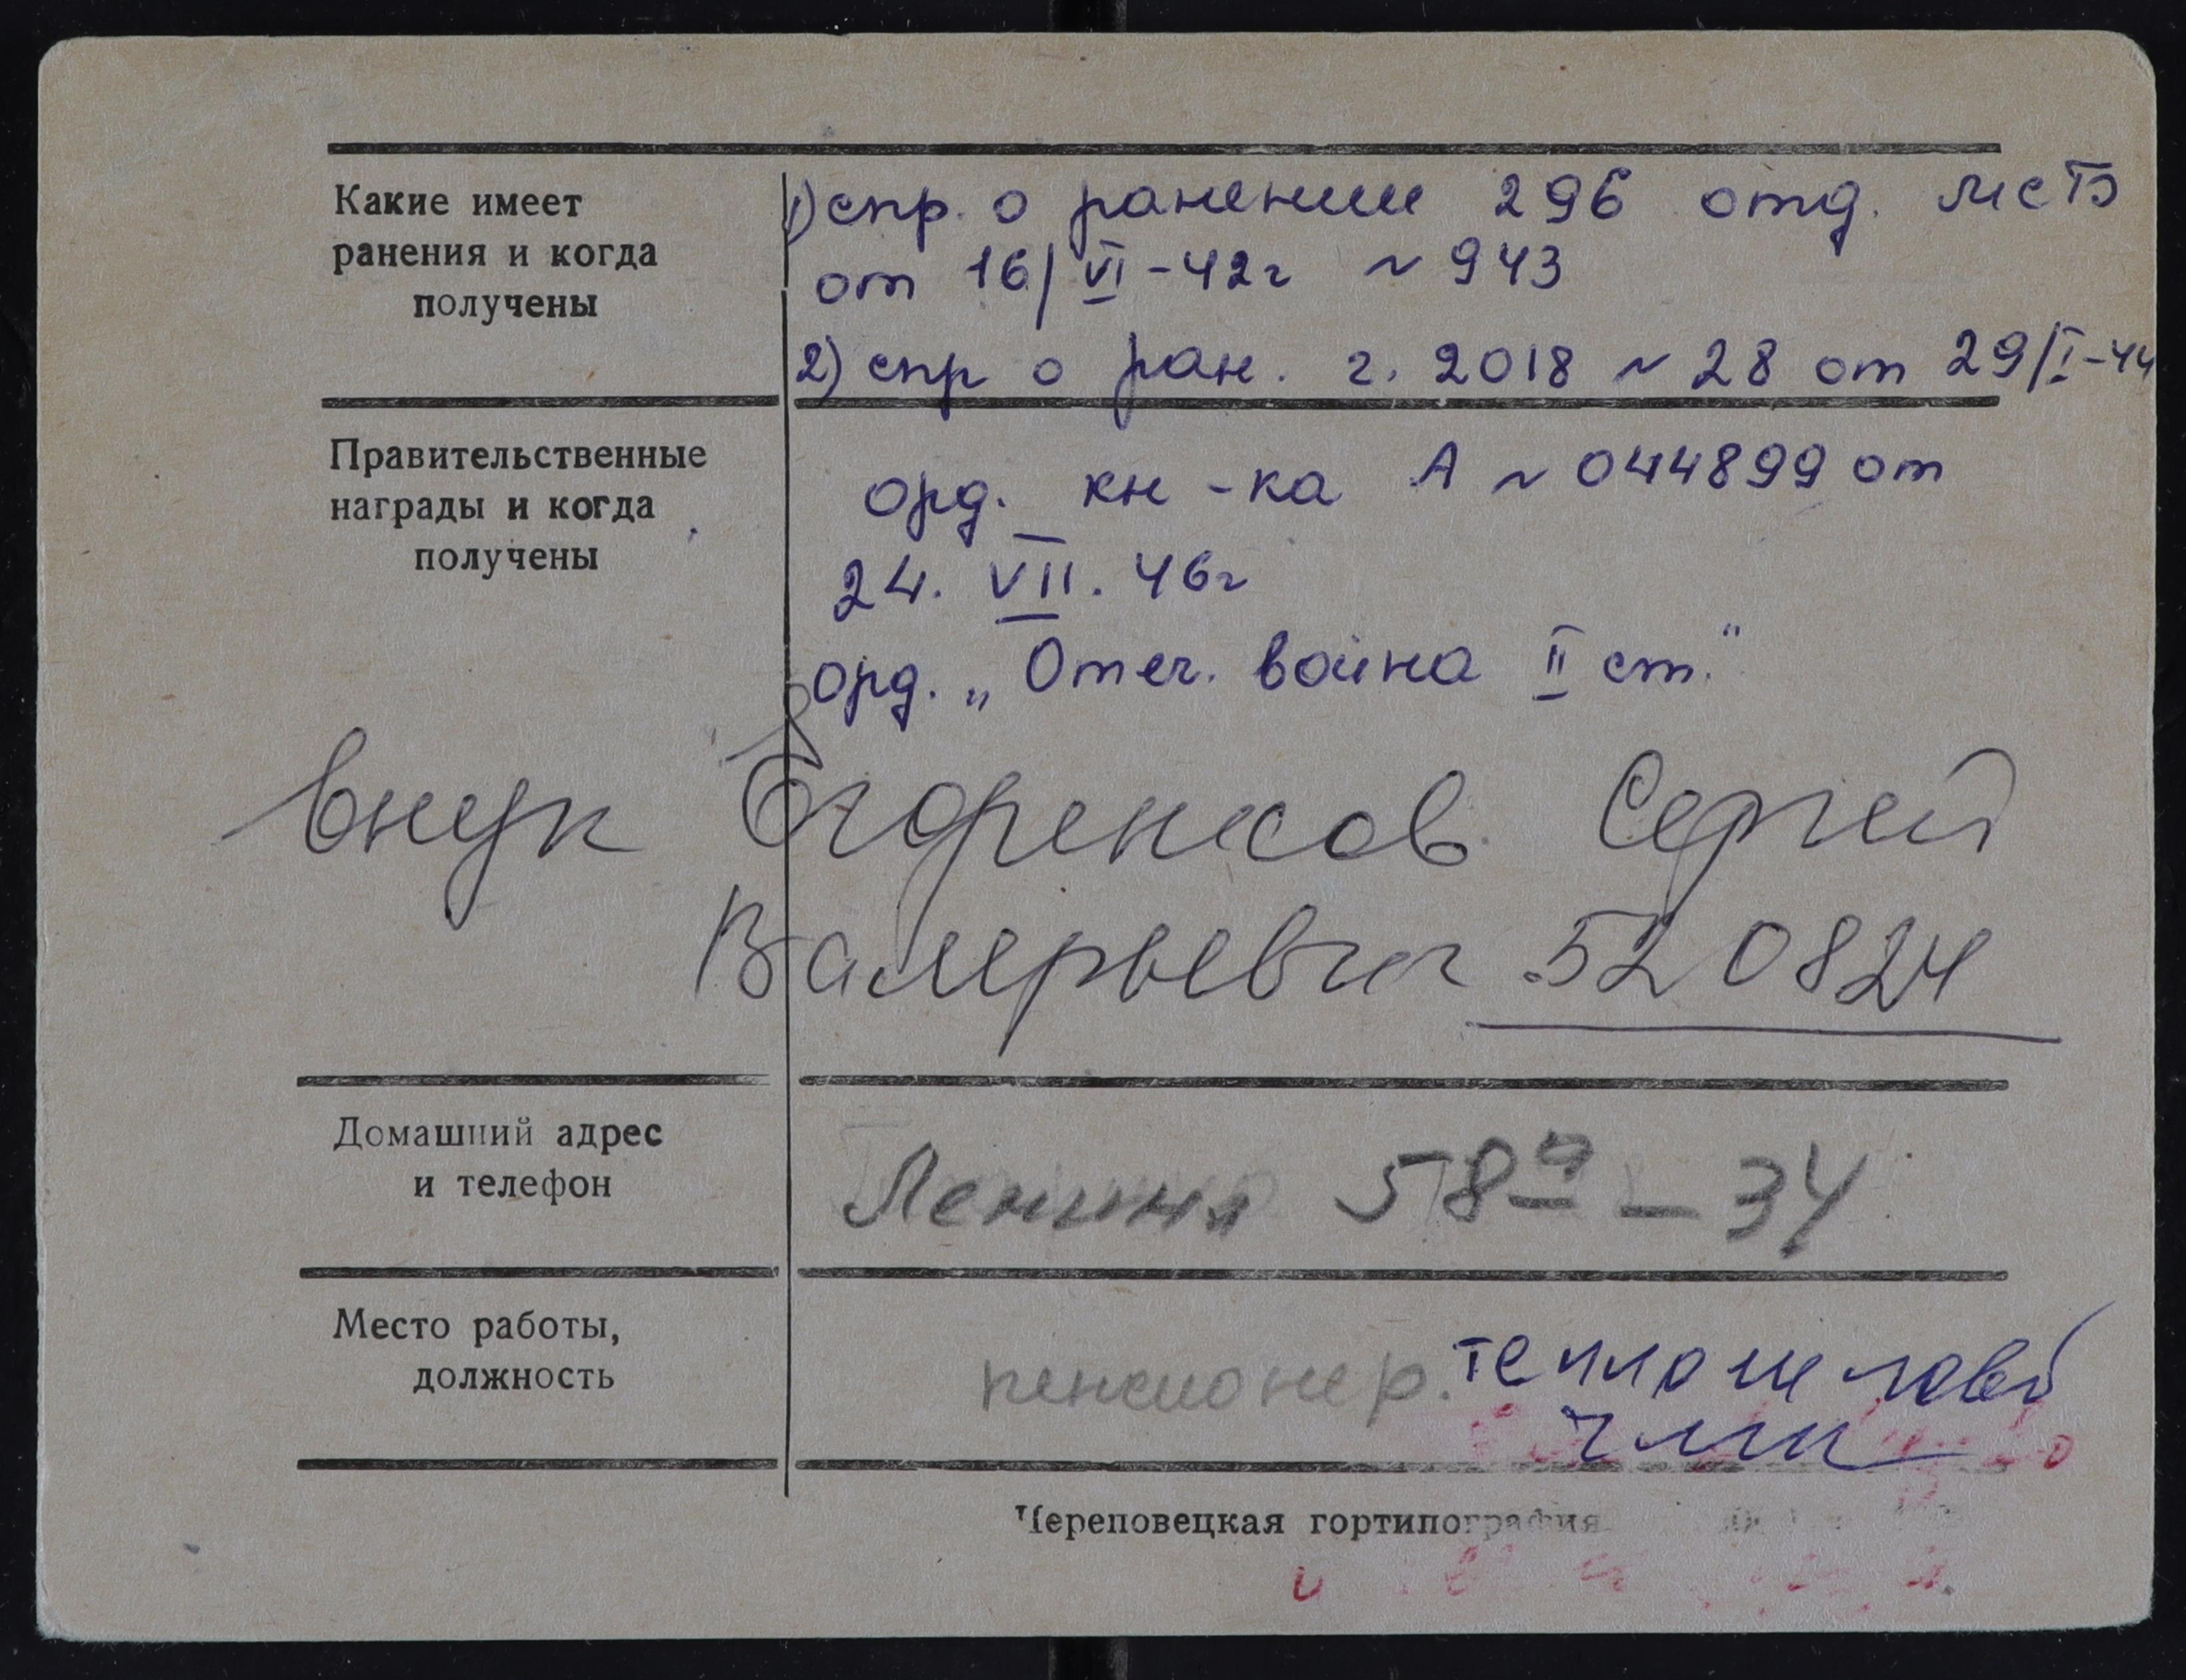 Какие имеет
ранения и когда
получены
1) спр. о ранении 296 отд. мстб
от 16/VI-42г ~ 943
2) спр о ран. г. 2018 ~ 28 от 29/I-44
Правительственные
награды и когда
получены
орд. кн-ка А ~ 044899 от
24. VII. 46г
орд. „Отеч. война II ст."
внук Егоренков Сергей
Валерьевич 520824
Домашний адрес
и телефон
Ленина 58а - 34
Место работы,
должность
пенсионер. теплосиловой
ЧМК
Череповецкая гортипография